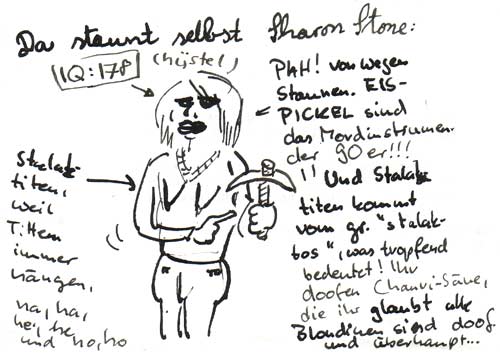 Da staunt selbst Sharon Stone:
IQ: 178
(hüstel)
PAH! von wegen
Staunen. EIS-
PICKEL sind
das Mordinstrumen-
der 90er!!!
Und Stalak
titen kommt
vom gr. "stalak-
tos", was tropfend
bedeutet! Ihr
doofen Chauvi-Säue,
die ihr glaubt alle
Blondinen sind doof
und überhaupt...
Stalak-
titen,
weil
Titten
immer
hängen,
ha, ha,
he, he
und ho, ho